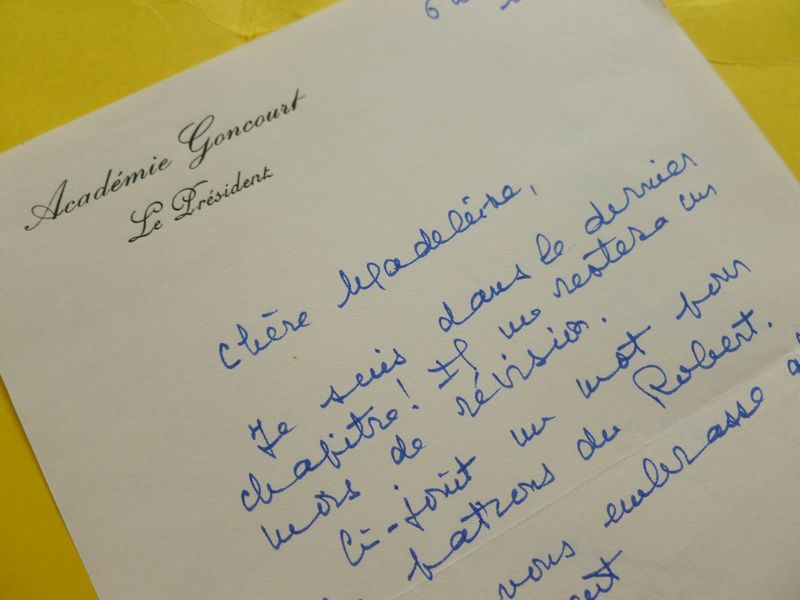 Académie Goncourt
Le Président
6
Chère Madeleine,
Je suis dans le dernier
chapitre! Il me restera un
mois de révision.
Ci-joint un mot pour
patrons du Robert.
vous embrasse